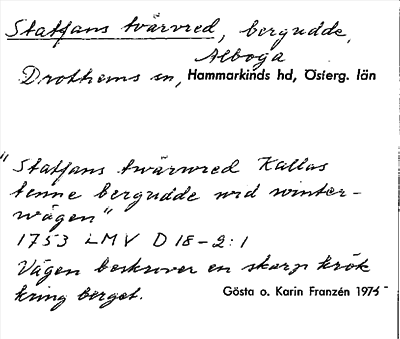 Staffans tvärvred, bergudde,
Alboga
Drothems sn, Hammarkinds hd, Österg. län
"Staffans twärwred Kallas
tenne bergudde wid winter-
wägen"
1753 LMV D 18-2:1
Vägen beskriver en skarp krök
kring berget.
Gösta o. Karin Franzén 1975